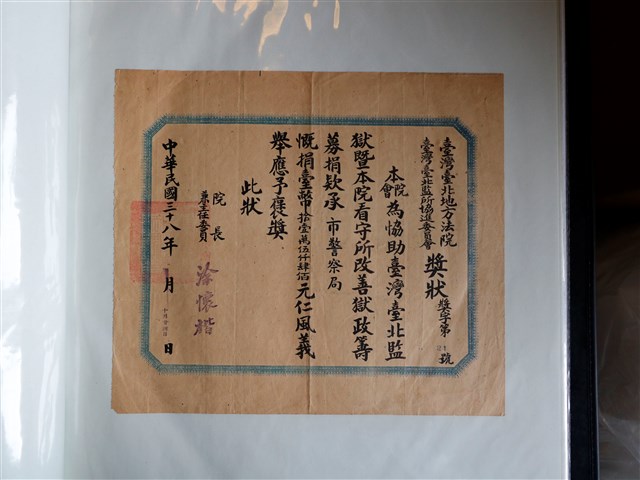 臺灣臺北地方法院
臺灣臺北監所協進委員會
獎狀
獎字第
號
本院
本會
為協助臺灣臺北監
獄暨本院看守所改善獄政籌
募捐款承市警察局
慨捐臺幣拾壹萬伍仟肆佰元仁風義
舉應予褒獎
此狀
院長
兼主任委員
涂懷楷
中華民國三十八年
月
日